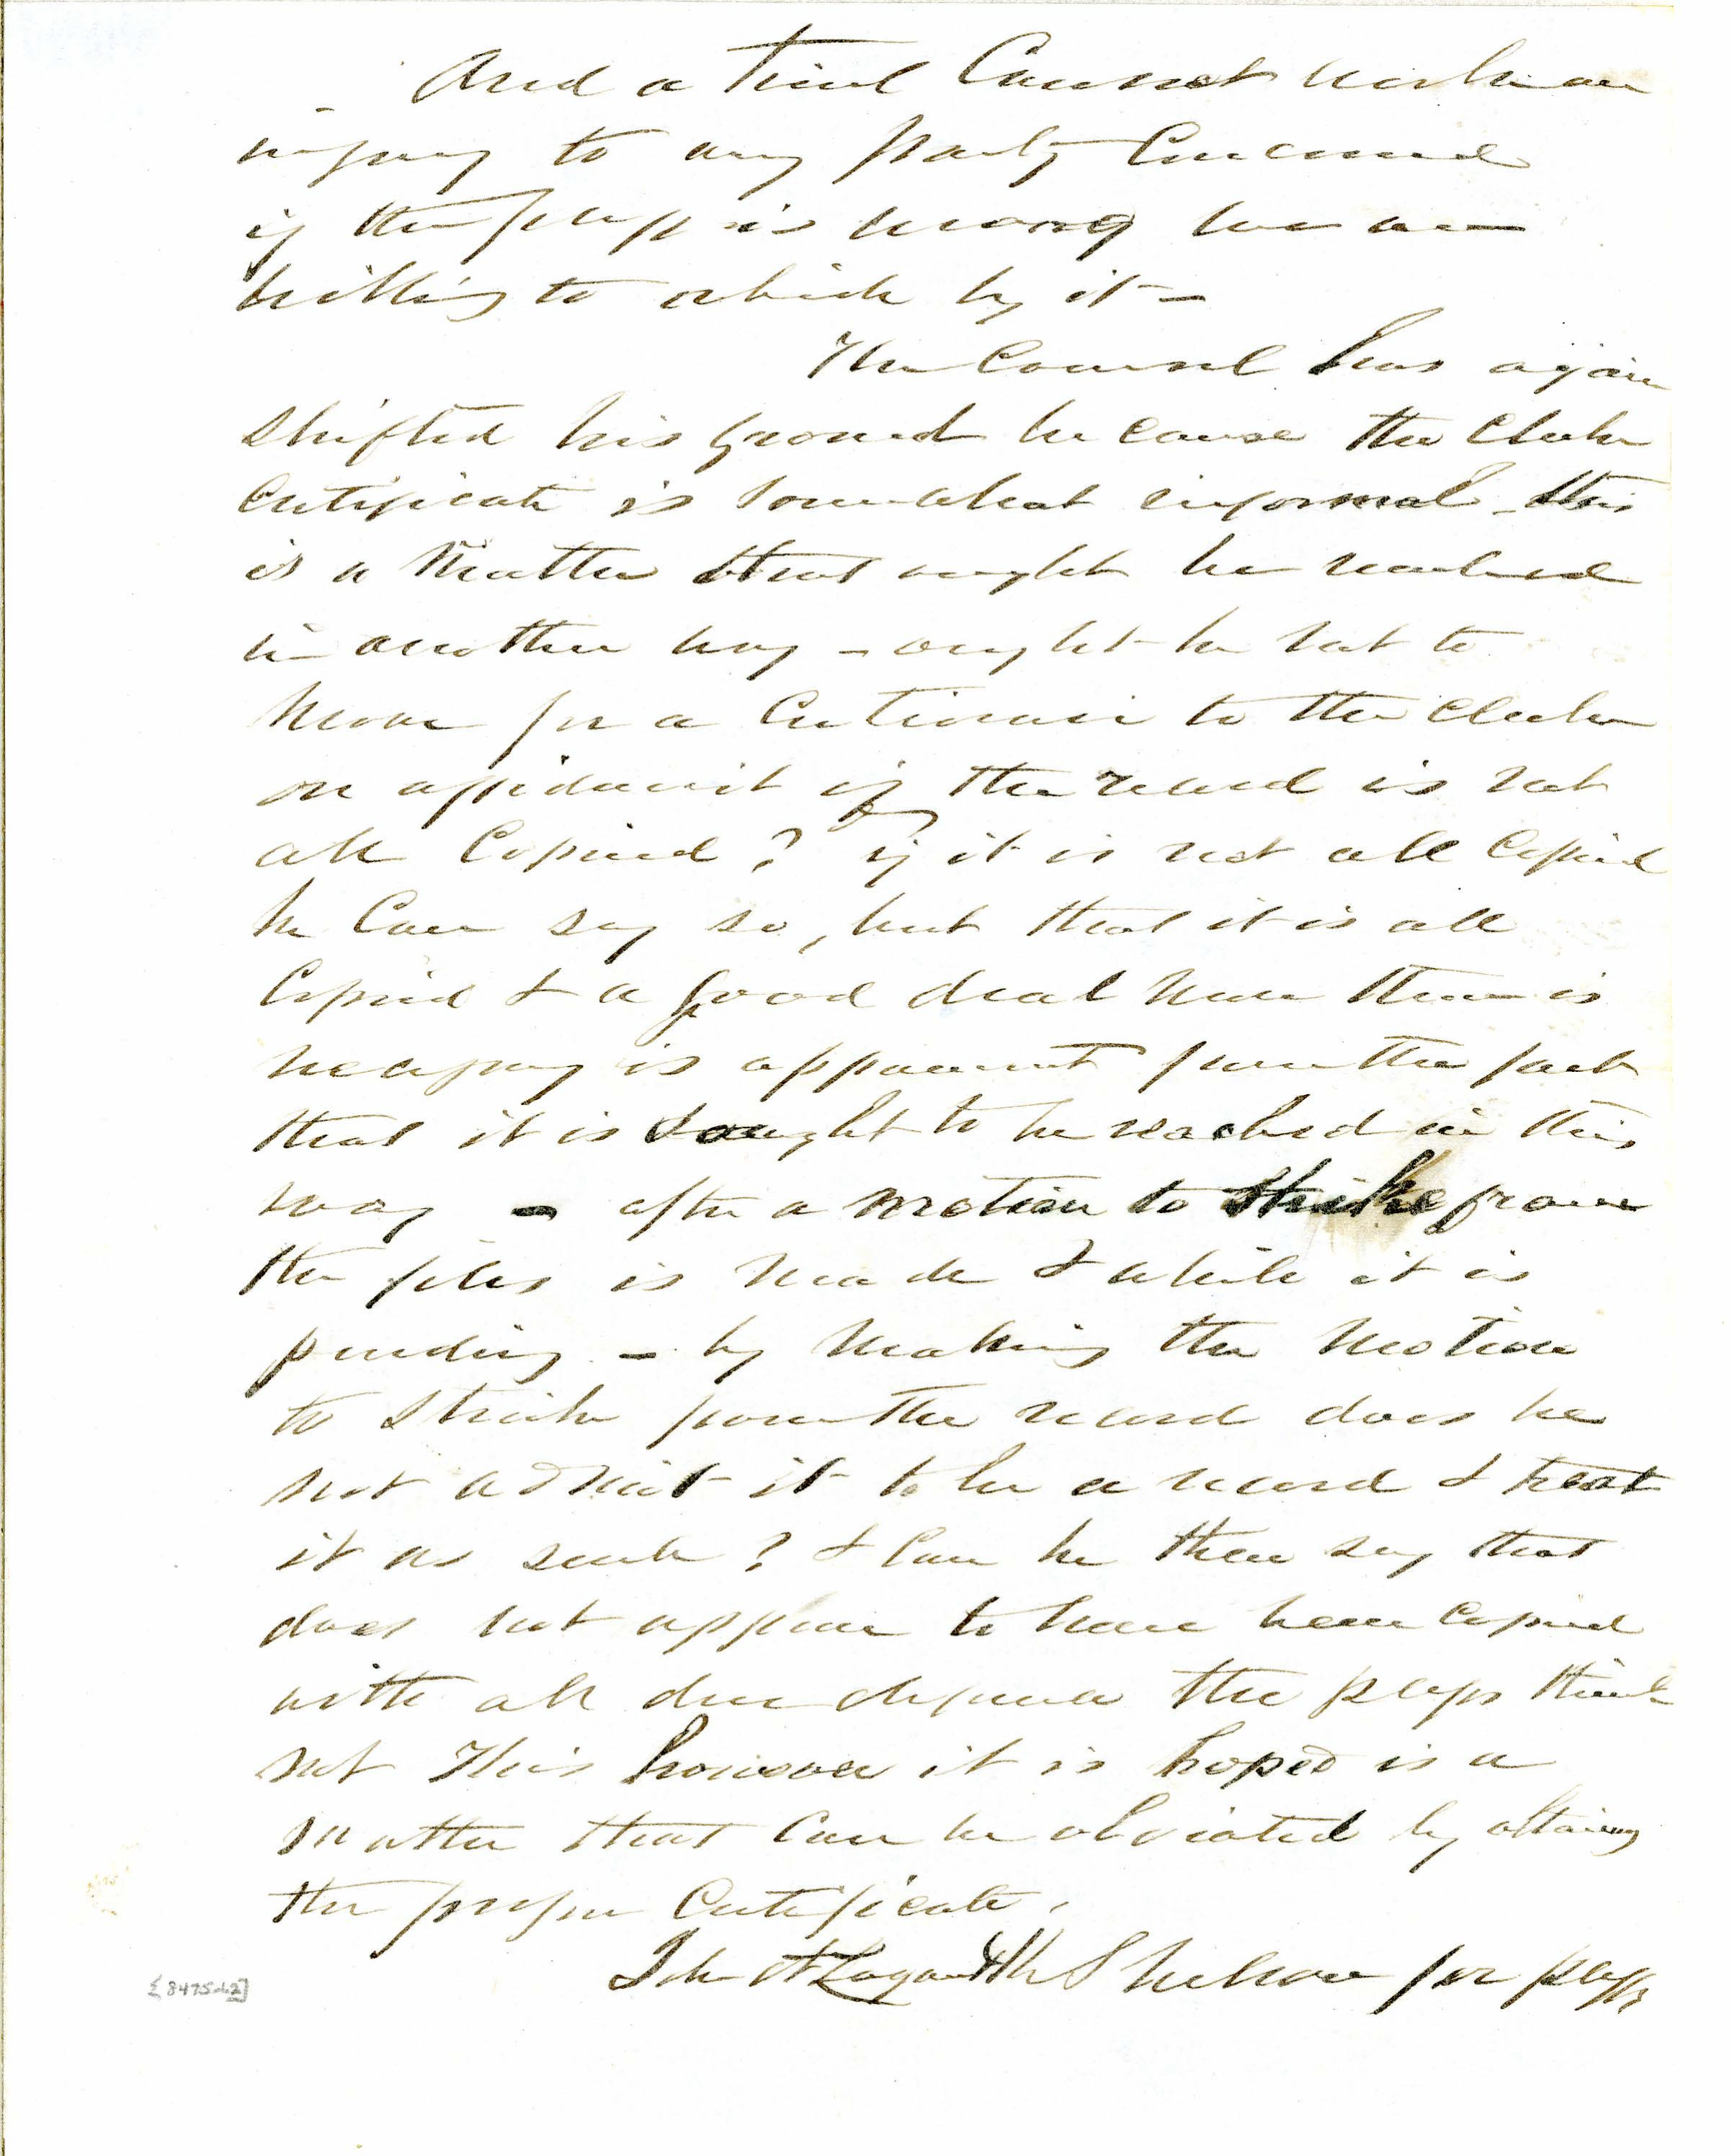 And a trial Cannot work an
injury to any party Concerned
if the plff is wrong we are
willing to abide by it –
The Counsel has again
shifted his ground because the Clerks
Certificate is somewhat informal – this
is a Matter that ought be reached
in another way – ought he not to
Move for a Certiorari to the Clerk
on affidavit if the record is not
all Copied? if it is not all Copied
he Can say so, but that it is all
Copied & a good deal More than is
necessary is apparent from the fact
that it is sought to be reached in this
way – after a motion to strike from
the files is Made & while it is
pending – by Making the Motion
to strike from the record does he
not admit it to be a record & treat
it as such? & Can he then say that
does not appear to have been Copied
with all due deference the plffs think
not This however it is hoped is a
matter that Can be obviated by attaining
the proper Certificate.
John A Logan & Wm J Nelson for plffs
[8475-62]